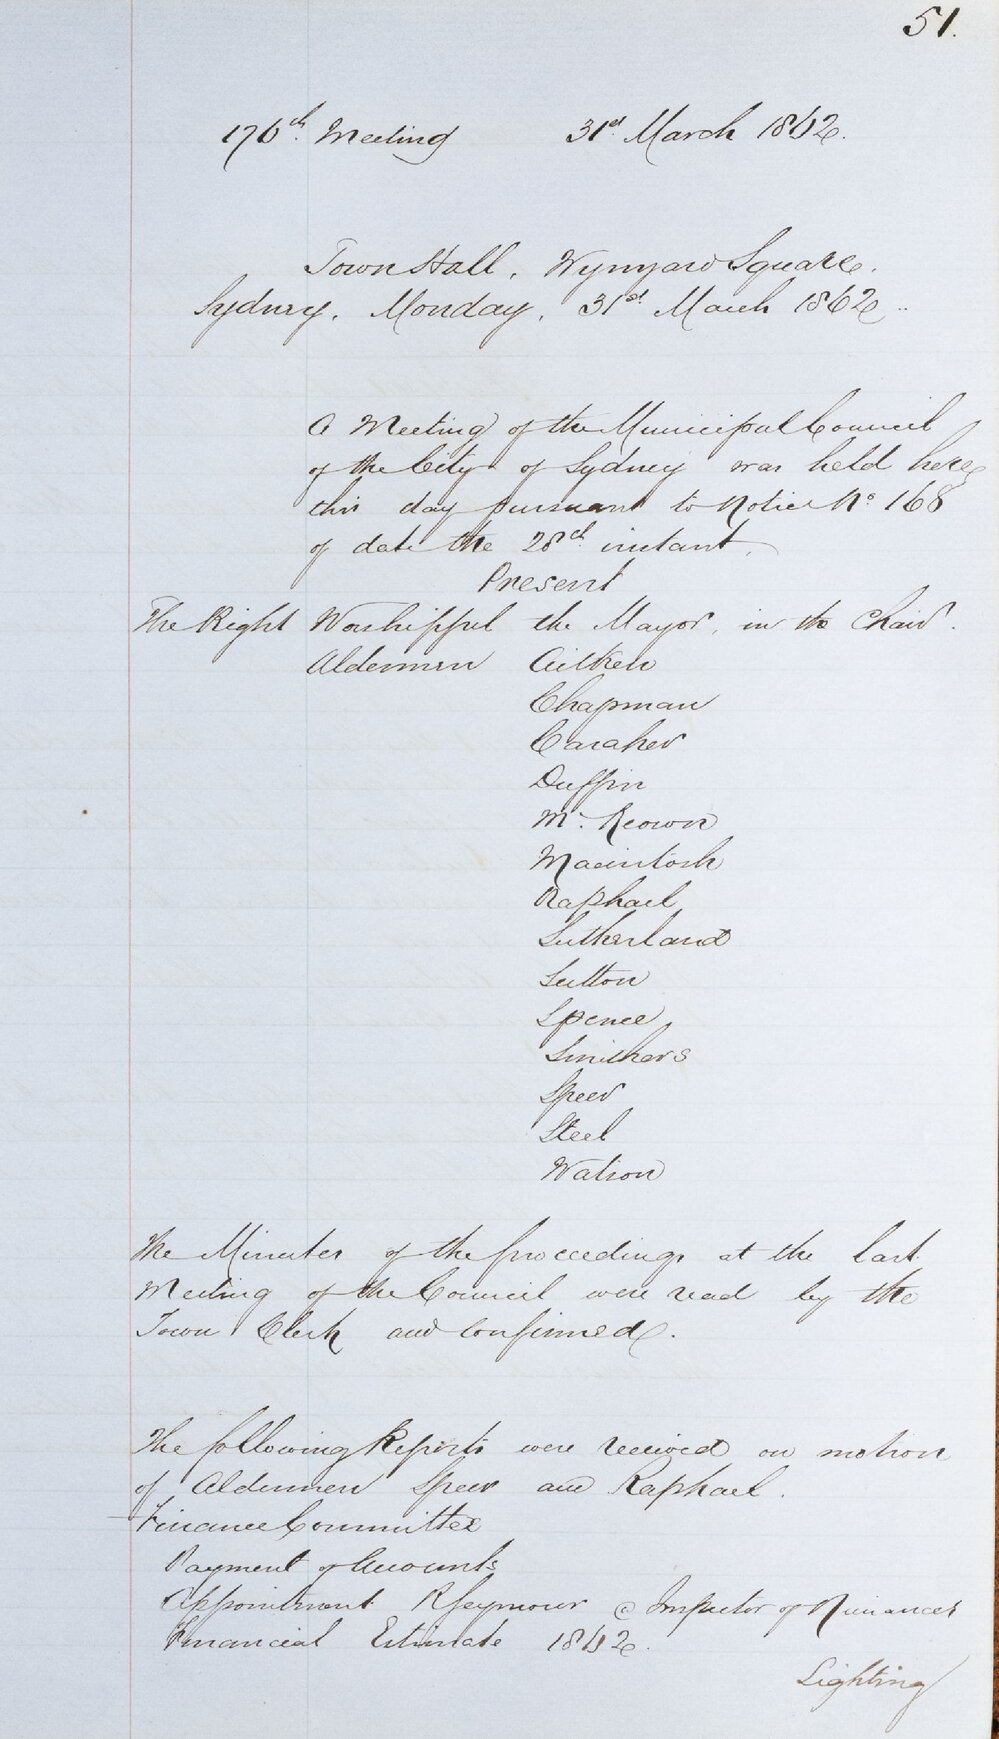 51.
176th. Meeting 31st. March 1862.
Town Hall, Wynyard Square.
Sydney, Monday, 31st. March 1862..
A Meeting of the Municipal Council
of the City of Sydney was held here
this day pursuant to Notice No. 168
of date the 28th. instant.
Present
The Right Worshipful the Mayor, in the Chair.
Aldermen Aitken
Chapman
Caraher
Duffin
Mc. Keown
Macintosh
Raphael
Sutherland
Sutton
Spence
Smithers
Speer
Steel
Watson
The Minutes of the proceedings at the last
Meeting of the Council were read by the
Town Clerk and confirmed.
The following Reports were received on motion
of Aldermen Speer and Raphael.
Finance Committee
Payment of Accounts
Appointment R Seymour @ Inspector of Nuisances
Financial Estimate 1862.
Lighting